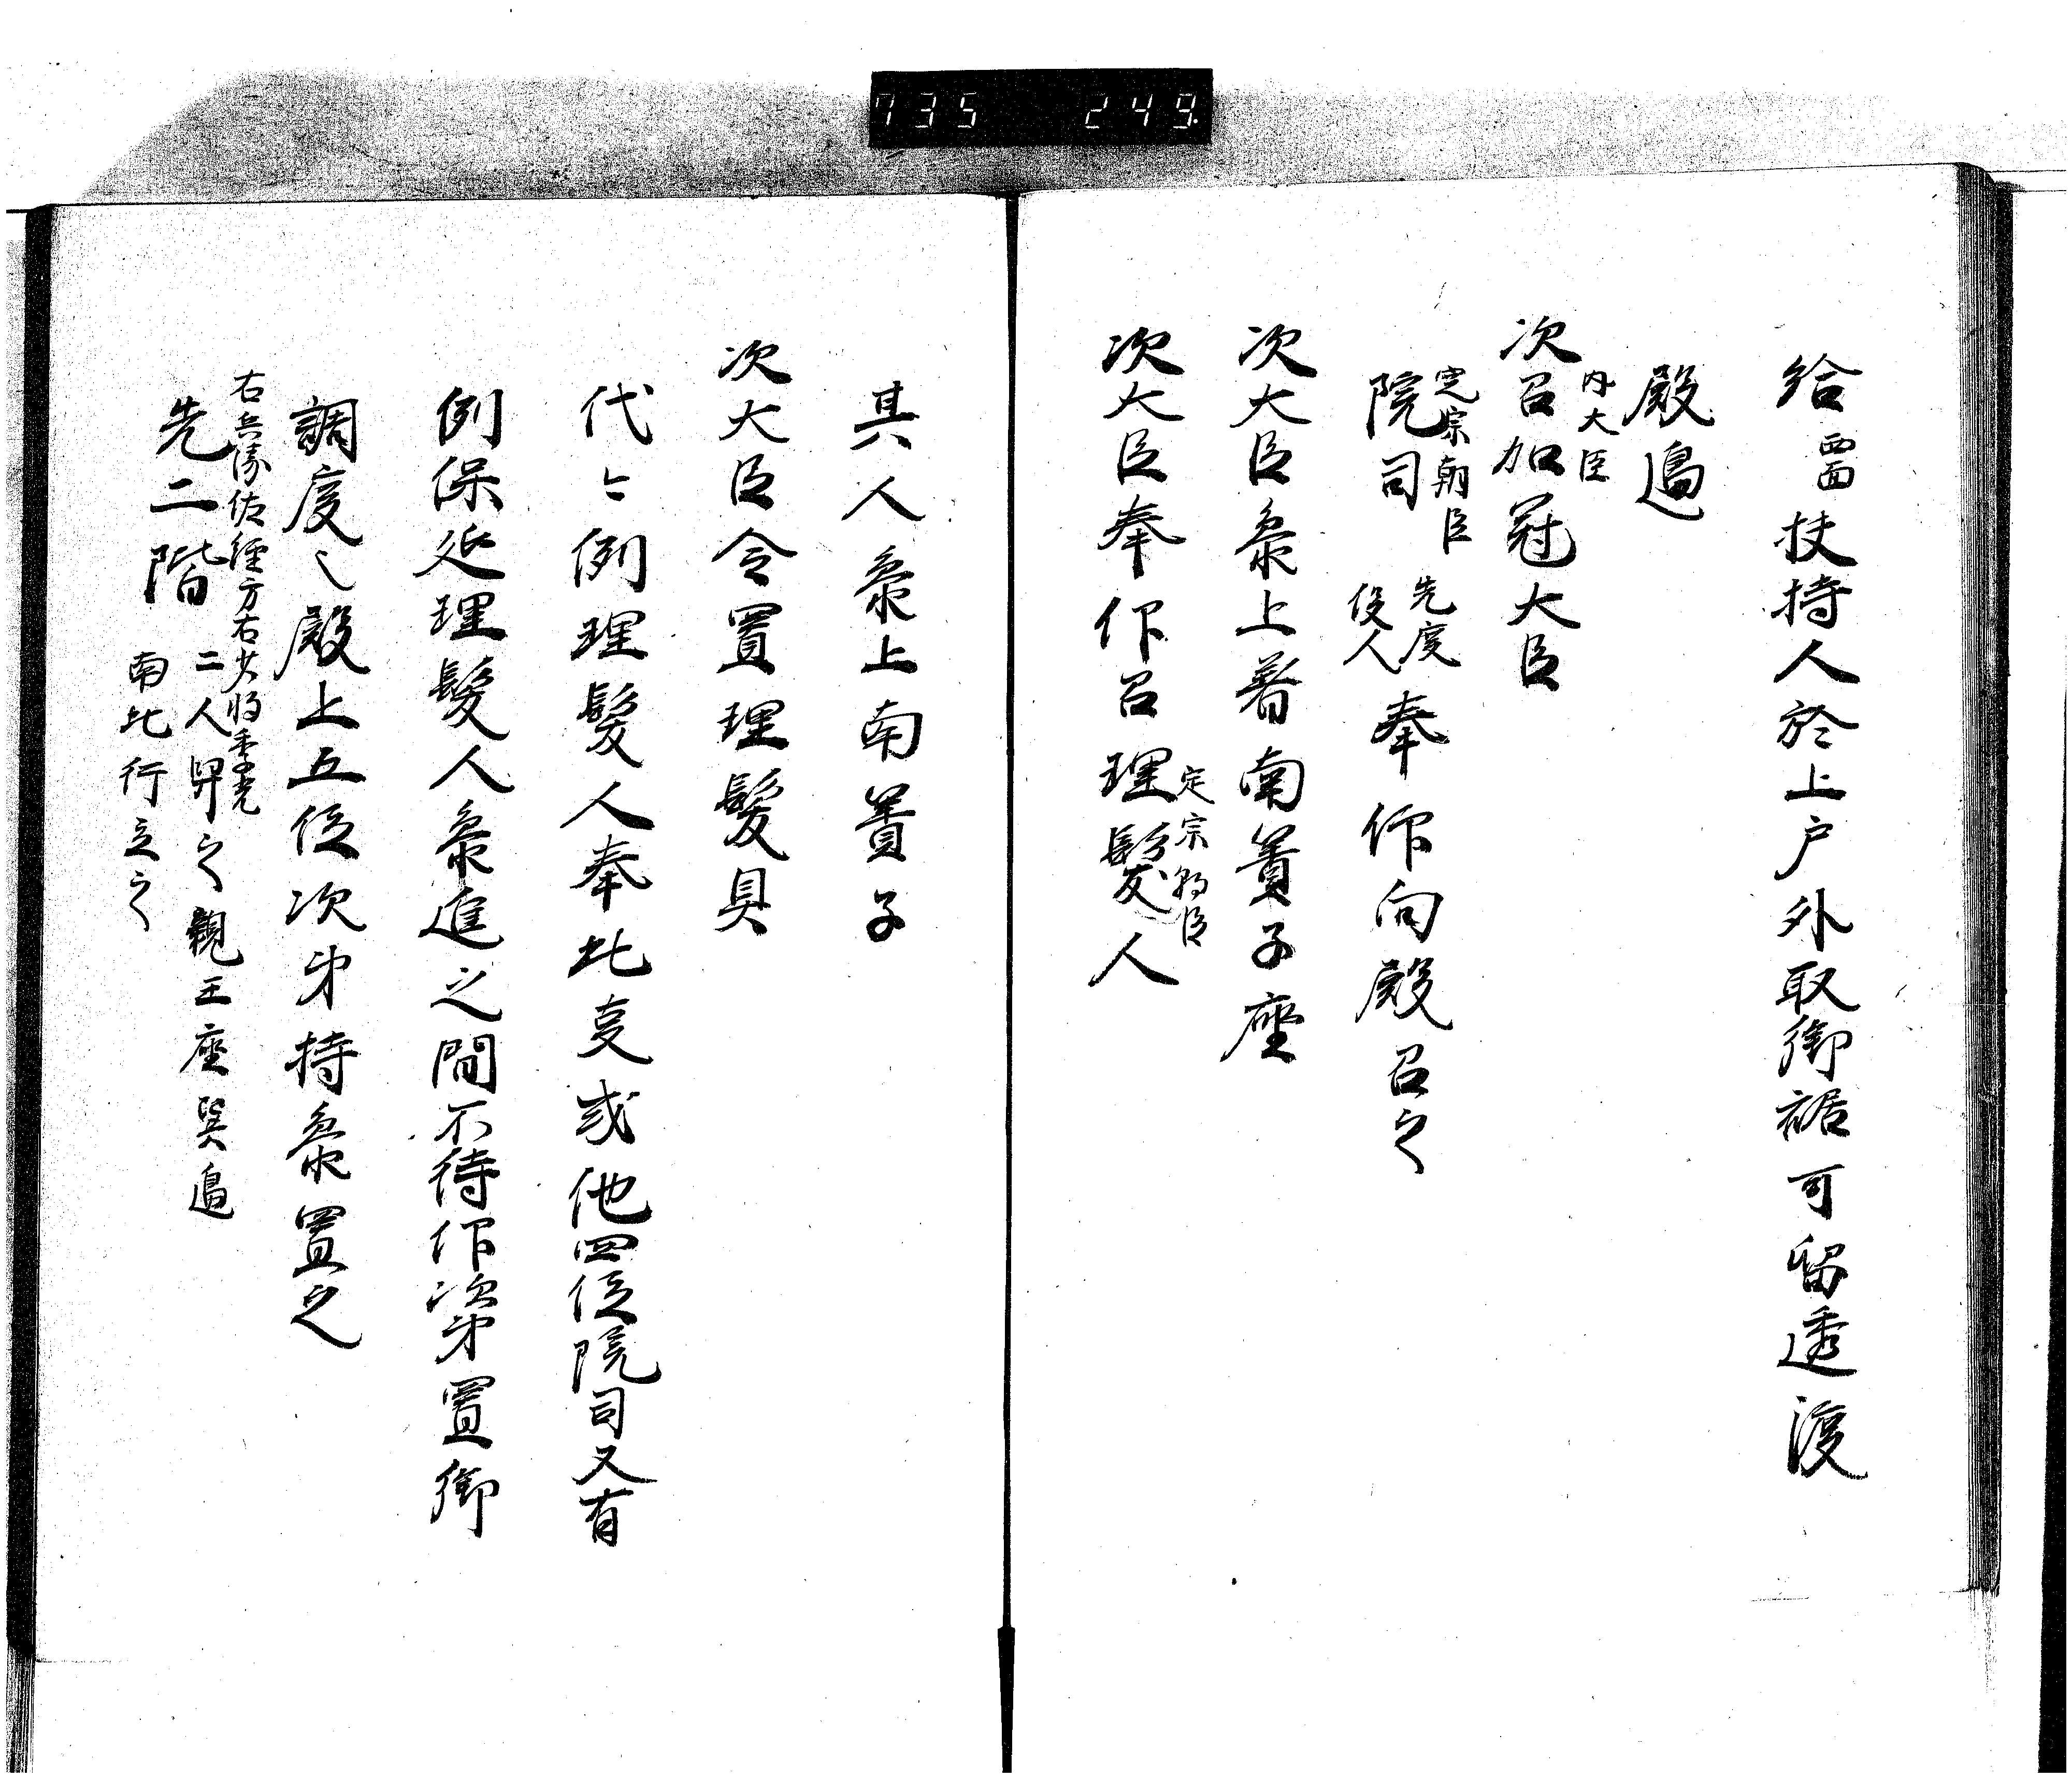 735 249
給西面扶持人於上戸外取御裾可留透渡
殿邊
内大臣
次召加冠大臣
定宗朝臣
院司先度役人奉仰向殿召之
次大臣参上著南簀子座
定宗朝臣
次大臣奉仰召理髪人
其人参上南簀子
次大臣令置理髪具
代々例理髪人奉此事或他四位院司又有
例保延理髪人参進之間不待仰次第置御
調度々殿上五位次第持参置之
右兵衛佐經方右少将季光
先二階二人舁之親王座巽邊
南北行立之